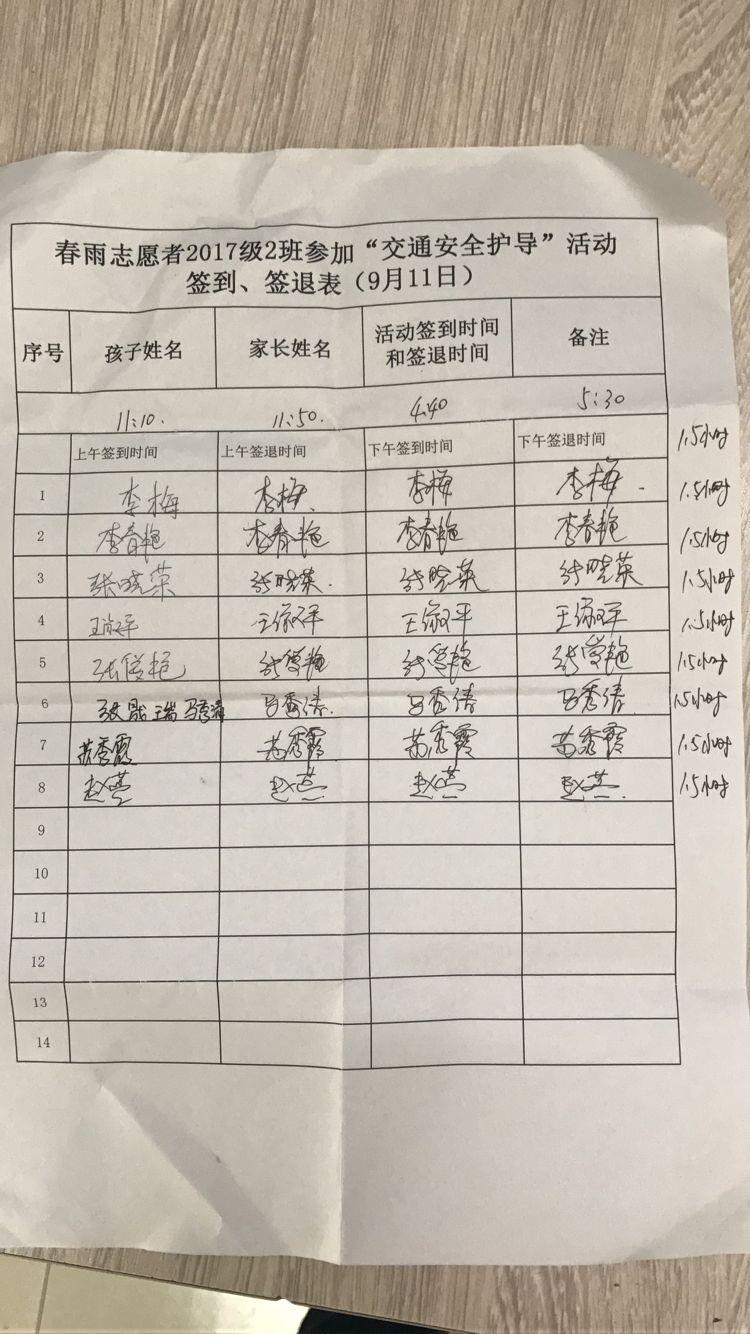 春雨志愿者2017级2班参加“交通安全护导”活动
签到、签退表（9月11日）
序号 孩子姓名 家长姓名 活动签到时间和签退时间 备注
11:10. 11:50. 4:40 5:30
上午签到时间 上午签退时间 下午签到时间 下午签退时间 1.5小时
1 李梅 李梅. 李梅 李梅. 1.5小时
2 李春艳 李春艳 李春艳 李春艳 1.5小时
3 张晓英 张晓英. 张晓英 张晓英 1.5小时
4 1.5小时
5 1.5小时
6 马秀清 马秀清. 马秀清 马秀清 1.5小时
7 苏秀霞 苏秀霞 苏秀霞 苏秀霞 1.5小时
8 1.5小时
9
10
11
12
13
14